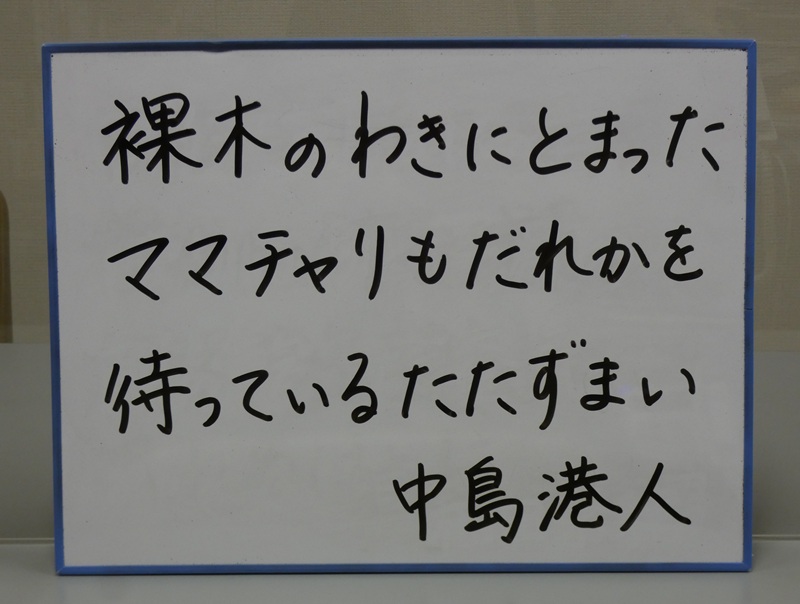 裸木のわきにとまった
ママチャリもだれかを
待っているたたずまい
中島港人